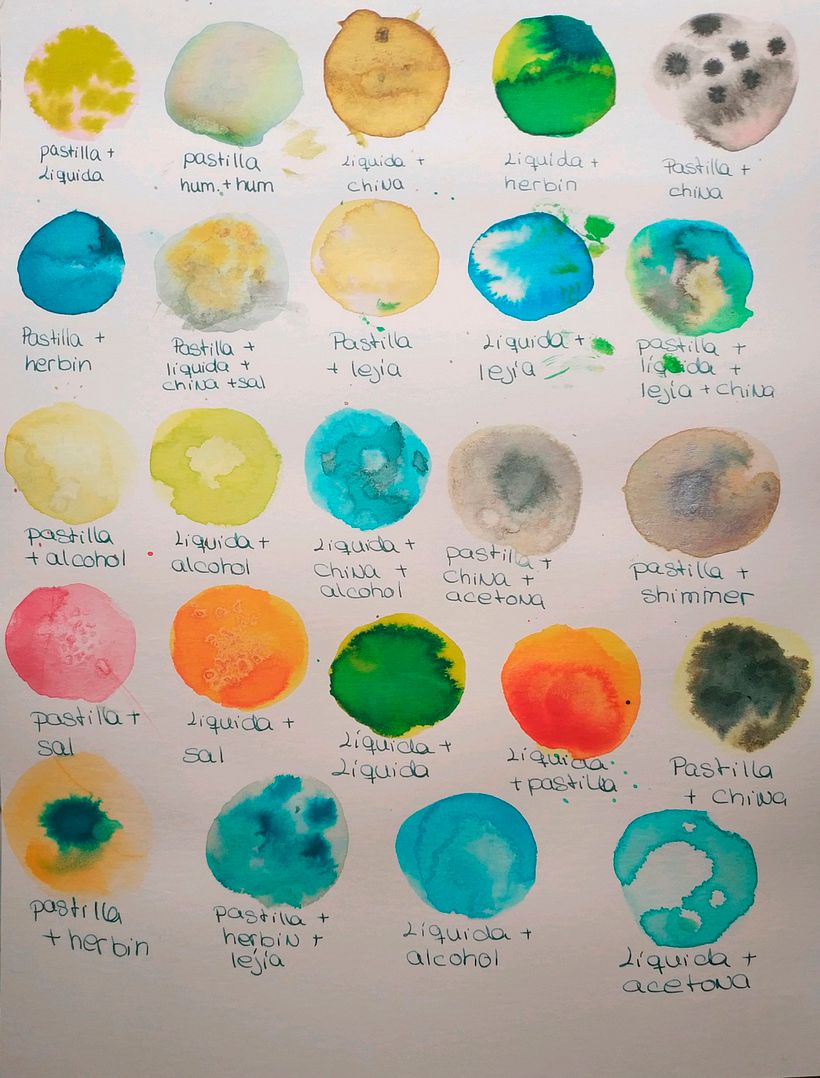 pastilla +
Liquida
pastilla
hum. + hum
Liquida +
china
Liquida +
herbin
Pastilla +
china
Pastilla +
herbin
Pastilla +
liquida +
china + sal
Pastilla
+ lejía
Liquida +
lejía
pastilla +
líquida +
lejía + china
pastilla
+ alcohol
Liquida +
alcohol
Liquida +
china +
alcohol
pastilla +
china +
acetona
pastilla +
shimmer
pastilla +
sal
Liquida +
sal
Liquida +
Liquida
Liquida
+ pastilla
Pastilla
+ china
pastilla
+ herbin
pastilla +
herbin +
lejía
Liquida +
alcohol
Liquida +
acetona